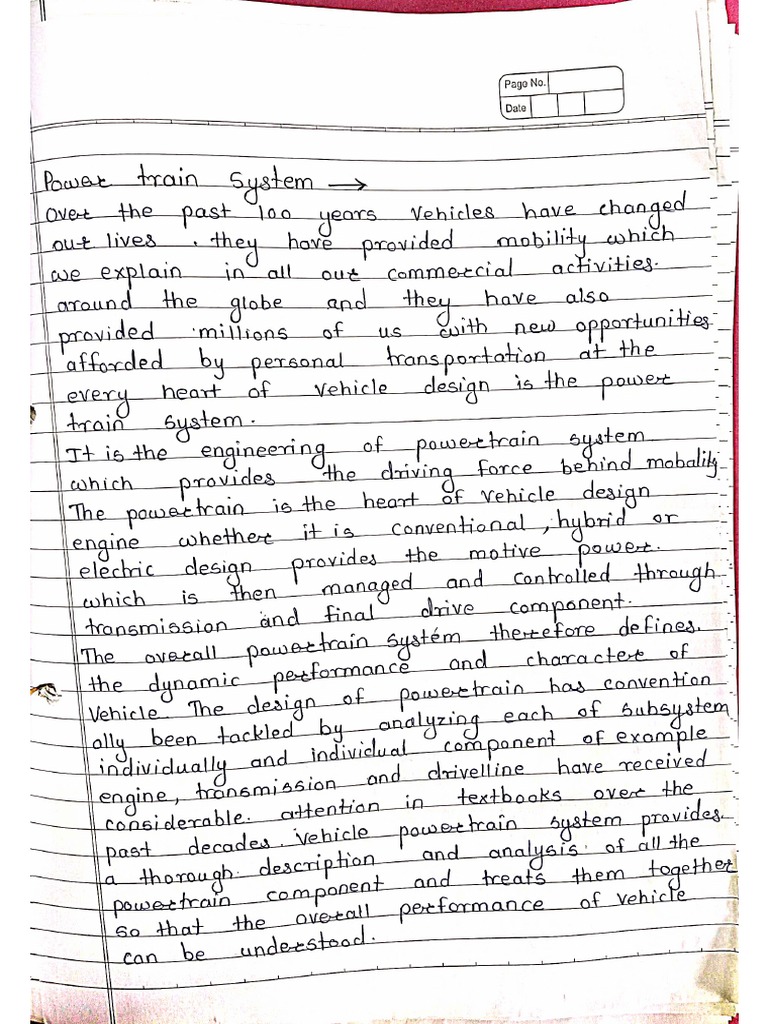 Page No.
Date
Power train system →
over the past 100 years vehicles have changed
our lives . they have provided mobility which
we explain in all our commercial activities.
around the globe and they have also
provided millions of us with new opportunities
afforded by personal transportation at the
every heart of vehicle design is the power
train system.
It is the engineering of powertrain system
which provides the driving force behind mobality
The powertrain is the heart of vehicle design
engine whether it is conventional, hybrid or
electric design provides the motive power.
which is then managed and controlled through
transmission and final drive component.
The overall powertrain system therefore defines.
the dynamic performance and character of
vehicle. The design of powertrain has convention
ally been tackled by analyzing each of subsystem
individually and individual component of example
engine, transmission and drivelline have received
considerable. attention in textbooks over the
past decades. vehicle powertrain system provides.
a thorough description and analysis of all the
powertrain component and treats them together
so that the overall performance of vehicle
can be understood.